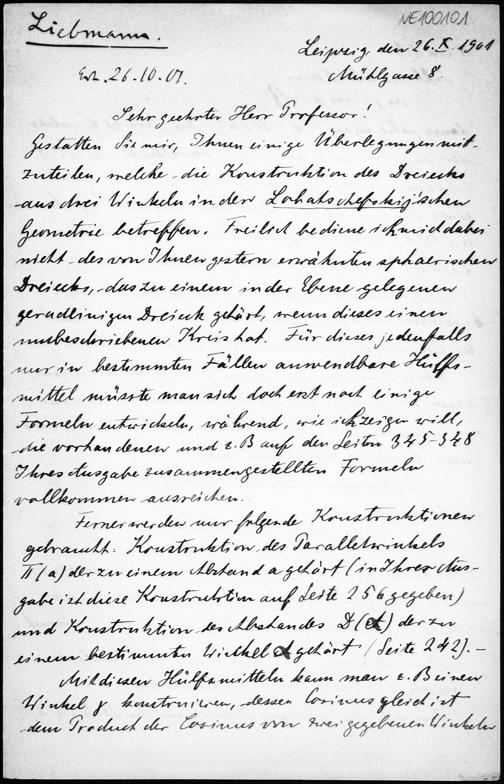 NE100101
Liebmann.
Leipzig den 26. X. 1901
Erh. 26.10.01.
Mühlgasse 8.
Sehr geehrter Herr Professor!
Gestatten Sie mir, Ihnen einige Überlegungen mit-
zuteilen, welche die Konstruktion des Dreiecks
aus drei Winkeln in der Lobatschefskij'schen
Geometrie betreffen. Freilich bediene ich mich dabei
nicht des von Ihnen gestern erwähnten sphaerischen
Dreiecks, das zu einem in der Ebene gelegenen
geradlinigen Dreieck gehört, wenn dieses einen
umbeschriebenen Kreis hat. Für dieses jedenfalls
nur in bestimmten Fällen anwendbare Hülfs-
mittel müsste man sich doch erst noch einige
Formeln entwickeln, während, wie ich zeigen will,
die vorhandenen und z. B auf den Seiten 345-348
Ihres Ausgabe zusammengestellten Formeln
vollkommen ausreichen.
Ferner werden nur folgende Konstruktionen
gebraucht: Konstruktion des Parallelwinkels
Π(a) der zu einem Abstand a gehört (in Ihrer Aus-
gabe ist diese Konstruktion auf Seite 256 gegeben)
und Konstruktion des Abstandes D(α) der zu
einem bestimmten Winkel α gehört (Seite 242). —
Mit diesen Hülfsmitteln kann man z. B einen
Winkel γ konstruieren, dessen Cosinus gleich ist
dem Product der Cosinus von zwei gegebenen Winkeln